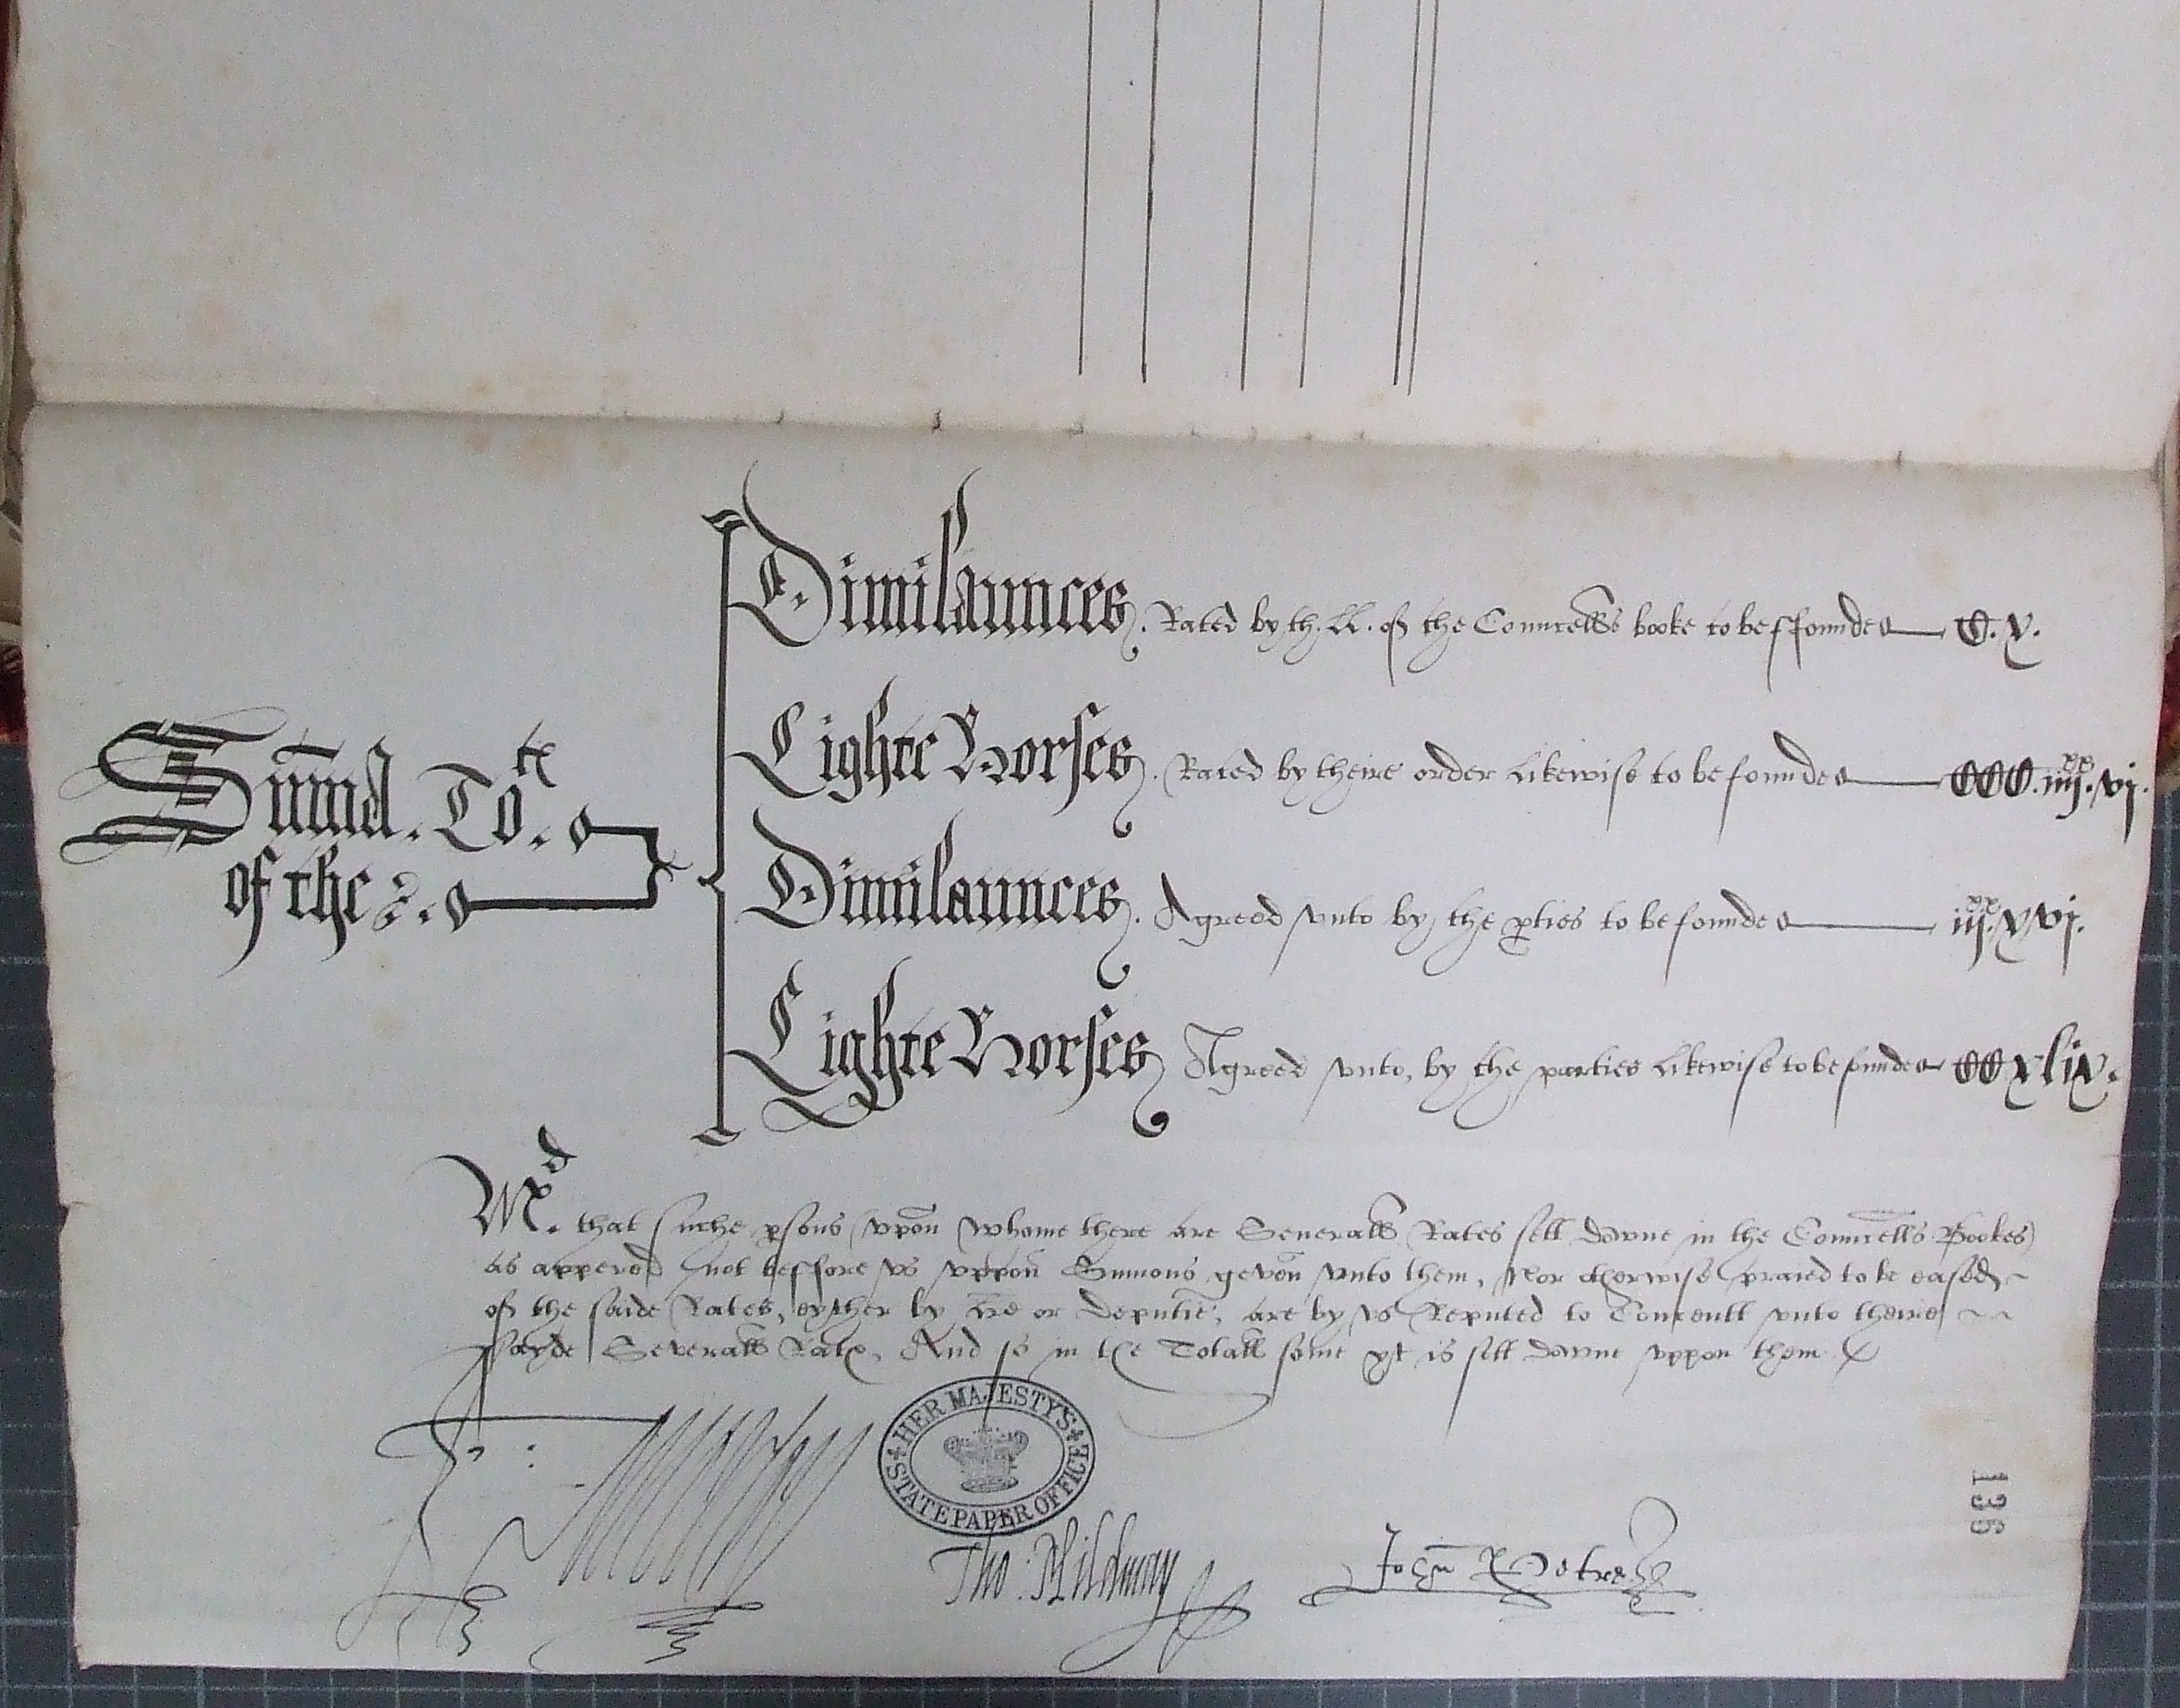 Dimilaunces. Rated by th. LL. of the Councells booke to be ffounde C. v.
Lighte Horses. Rated by theire order Likewise to be founde CCC. iiij xx. vj.
Sum̅a. To tl.
of the
Dimilaunces. Agreed vnto by the p̱ties to be founde iij xx. xvj.
Lighte Horses Agreed vnto, by the parties Likewise to be funde CC xlix.
M d. that suche p̱sons vpon whome there are Severall Rates sett downe in the Councells Bookes
as appered not beffore vs vppon Sumons geven vnto them, Nor otherwise praied to be eased
of the saide Rates, eyther by l̅re or deputie, are by vs Reputed to Concentt vnto theire
sayde Severall Rate, And so in the Totall some yt is sett downe vppon them
HER MAJESTY'S
STATE PAPER OFFICE
Tho: Mildmay
John Petre
136